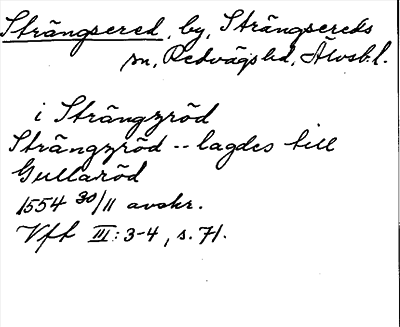 Strängsered, by, Strängsereds
sn, Redvägs hd, Älvsb. l.
i Strängzröd
Strängzröd -- lagdes till
Gullaröd
1554 30/11 avskr.
Vft III: 3-4, s. 71.